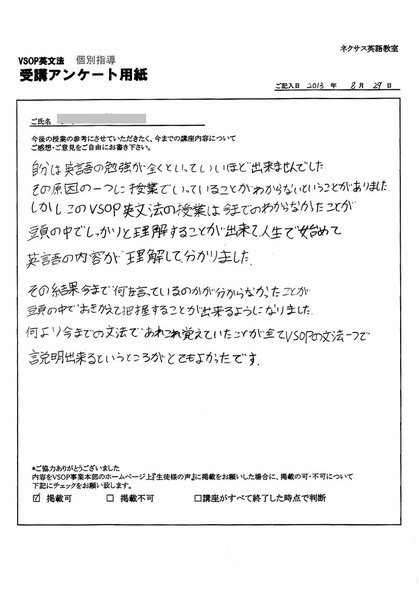 ネクサス英語教室
VSOP英文法 個別指導
受講アンケート用紙
ご記入日 2013 年 8 月 29 日
ご氏名
今後の授業の参考にさせていただきたく、今までの講座内容について
ご感想・ご意見をご自由にお書き下さい。
自分は英語の勉強が全くといっていいほど出来ませんでした
その原因の一つに授業でいっていることがわからないということがありました
しかしこのVSOP英文法の授業は今までのわからなかったことが
頭の中でしっかりと理解することが出来て人生で始めて
英語の内容が理解して分かりました.
その結果今まで何を言っているのかが分からなかったことが
頭の中でおきかえて把握することが出来るようになりました.
何より今までの文法であれこれ覚えていたことが全てVSOPの文法一つで
説明出来るというところがとてもよかったです.
*ご協力ありがとうございました
内容をVSOP事業本部のホームページ上『生徒様の声』に掲載をお願いした場合に、掲載の可・不可について
下記にチェックをお願い致します。
☑ 掲載可 □ 掲載不可 □講座がすべて終了した時点で判断